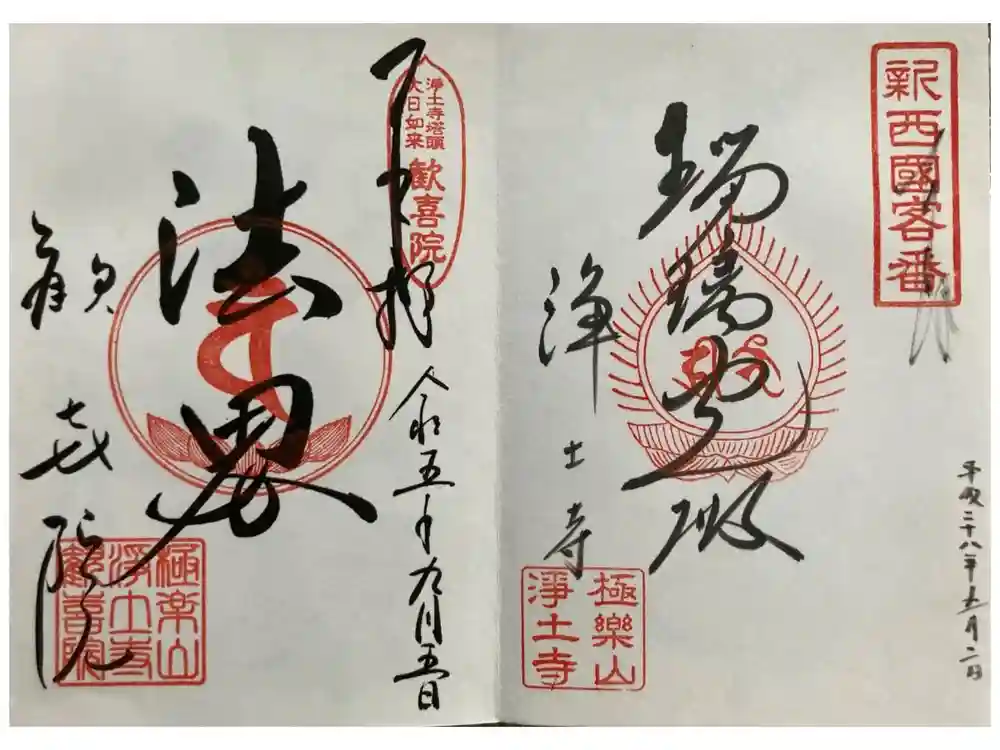 新西國客番
平成二十八年五月二日
瑠璃光殿
浄土寺
極樂山
淨土寺
浄土寺塔頭
大日如来
歓喜院
拝
令和五年九月五日
法界
歓喜院
極楽山
浄土寺
歓喜院